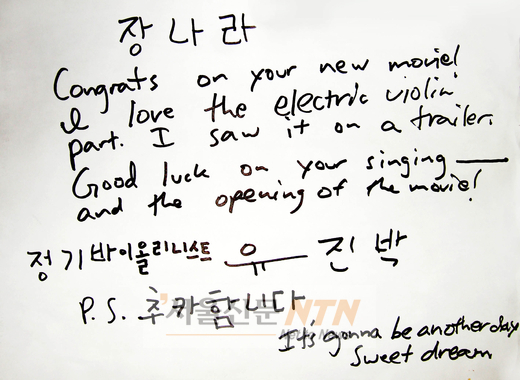 장나라
Congrats on your new movie!
I love the electric violin
part. I saw it on a trailer.
Good luck on your singing —
and the opening of the movie!
정기바이올리니스트 유진박
P.S. 추카함니다
서울신문NTN
It's gonna be another day
Sweet dream